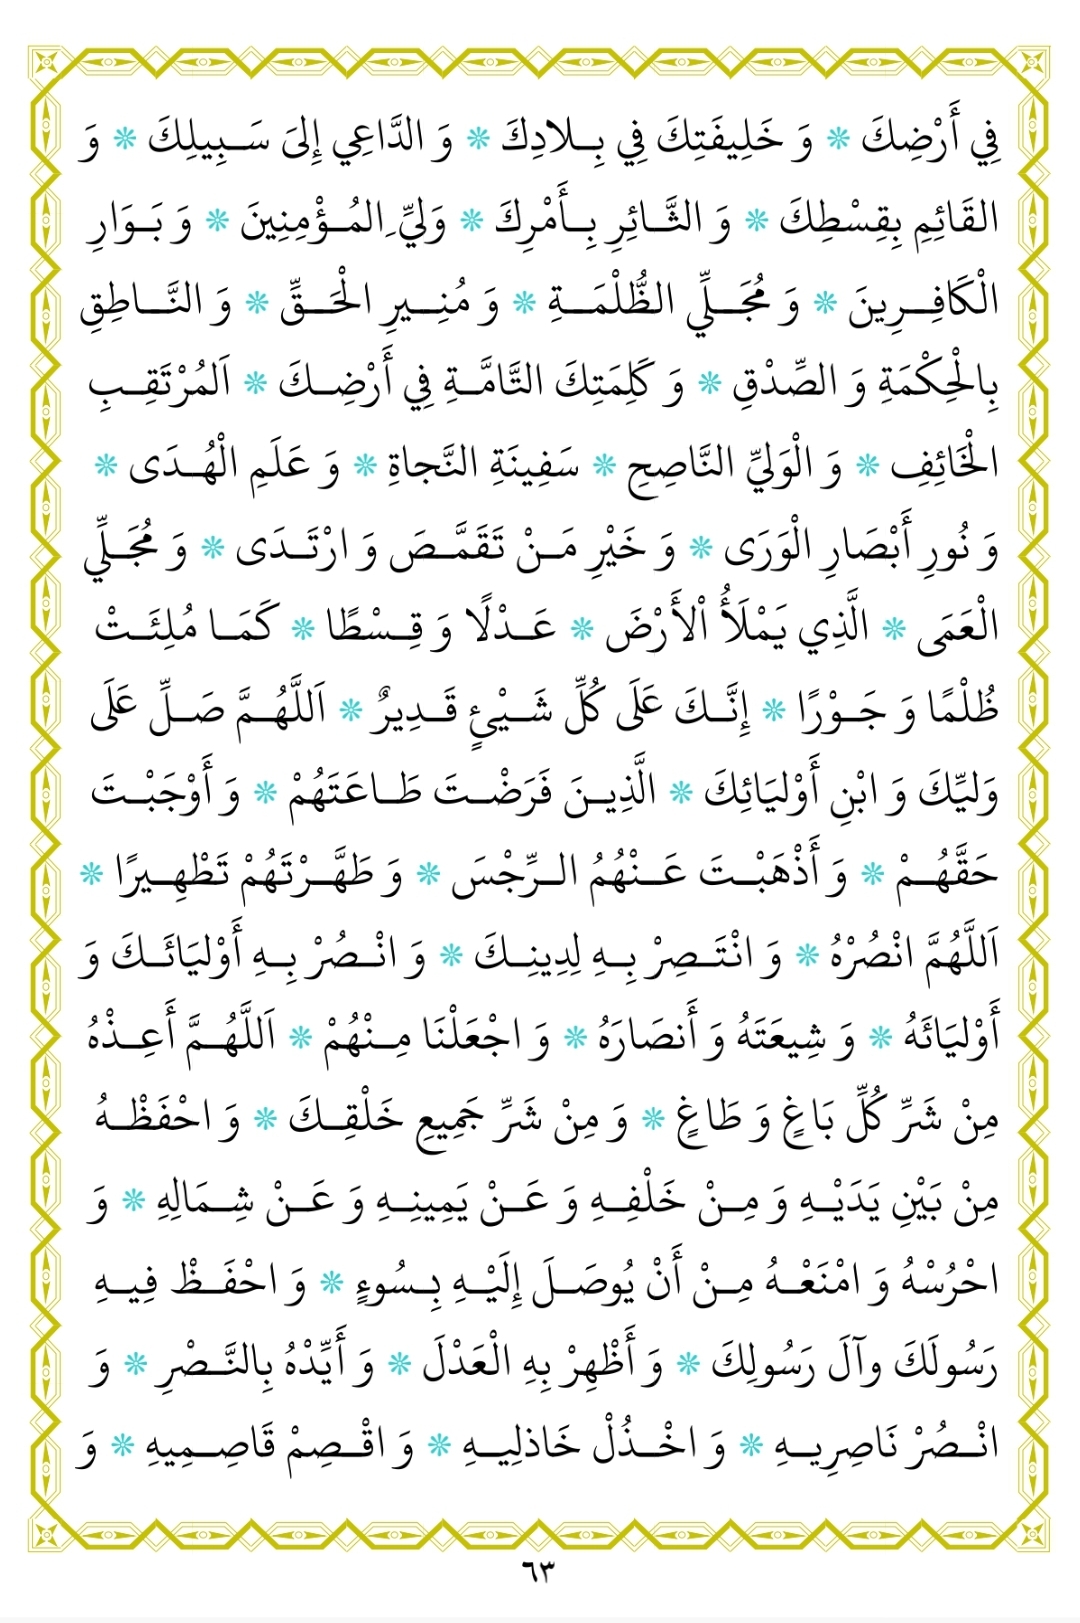 فِي أَرْضِكَ * وَ خَلِيفَتِكَ فِي بِـلادِكَ * وَ الدَّاعِي إِلىَ سَـبِيلِكَ * وَ
القَائِمِ بِقِسْطِكَ * وَ الثَّـائِرِ بِـأَمْرِكَ * وَلِيِّ المُـؤْمِنِينَ * وَ بَـوَارِ
الْكَافِـرِينَ * وَ مُجَـلِّي الظُّلْمَـةِ * وَ مُنِـيرِ الْحَـقِّ * وَ النَّـاطِقِ
بِالْحِكْمَةِ وَ الصِّدْقِ * وَ كَلِمَتِكَ التَّامَّـةِ فِي أَرْضِـكَ * اَلمُرْتَقِـبِ
الْخَائِفِ * وَ الْوَلِيِّ النَّاصِحِ * سَفِينَةِ النَّجاةِ * وَ عَلَمِ الْهُـدَى *
وَ نُورِ أَبْصَارِ الْوَرَى * وَ خَيْرِ مَـنْ تَقَمَّـصَ وَ ارْتَـدَى * وَ مُجَـلِّي
الْعَمَى * الَّذِي يَمْلَأُ اْلأَرْضَ * عَـدْلًا وَ قِـسْطًا * كَمَـا مُلِئَـتْ
ظُلْمًا وَ جَـوْرًا * إِنَّـكَ عَلَى كُلِّ شَـيْئٍ قَـدِيرٌ * اَللَّهُـمَّ صَـلِّ عَلَى
وَلِيِّكَ وَ ابْنِ أَوْليَائِكَ * الَّذِيـنَ فَرَضْـتَ طَـاعَتَهُمْ * وَ أَوْجَبْـتَ
حَقَّهُـمْ * وَ أَذْهَبْـتَ عَـنْهُمُ الـرِّجْسَ * وَ طَهَّـرْتَهُمْ تَطْهِـيرًا *
اَللَّهُمَّ انْصُرْهُ * وَ انْتَـصِرْ بِـهِ لِدِينِـكَ * وَ انْـصُرْ بِـهِ أَوْليَائَـكَ وَ
أَوْليَائَهُ * وَ شِيعَتَهُ وَ أَنصَارَهُ * وَ اجْعَلْنَا مِـنْهُمْ * اَللَّهُـمَّ أَعِـذْهُ
مِنْ شَرِّ كُلِّ بَاغٍ وَ طَاغٍ * وَ مِنْ شَرِّ جَمِيعِ خَلْقِـكَ * وَ احْفَظْـهُ
مِنْ بَيْنِ يَدَيْـهِ وَ مِـنْ خَلْفِـهِ وَ عَـنْ يَمِينِـهِ وَ عَـنْ شِـمَالِهِ * وَ
احْرُسْهُ وَ امْنَعْـهُ مِـنْ أَنْ يُوصَـلَ إِلَيْـهِ بِـسُوءٍ * وَ احْفَـظْ فِيـهِ
رَسُولَكَ وآلَ رَسُولِكَ * وَ أَظْهِرْ بِهِ الْعَدْلَ * وَ أَيِّدْهُ بِالنَّـصْرِ * وَ
انْـصُرْ نَاصِرِيـهِ * وَ اخْـذُلْ خَاذلِيـهِ * وَ اقْـصِمْ قَاصِـمِيهِ * وَ
٦٣